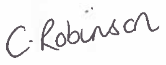 C. Robinson